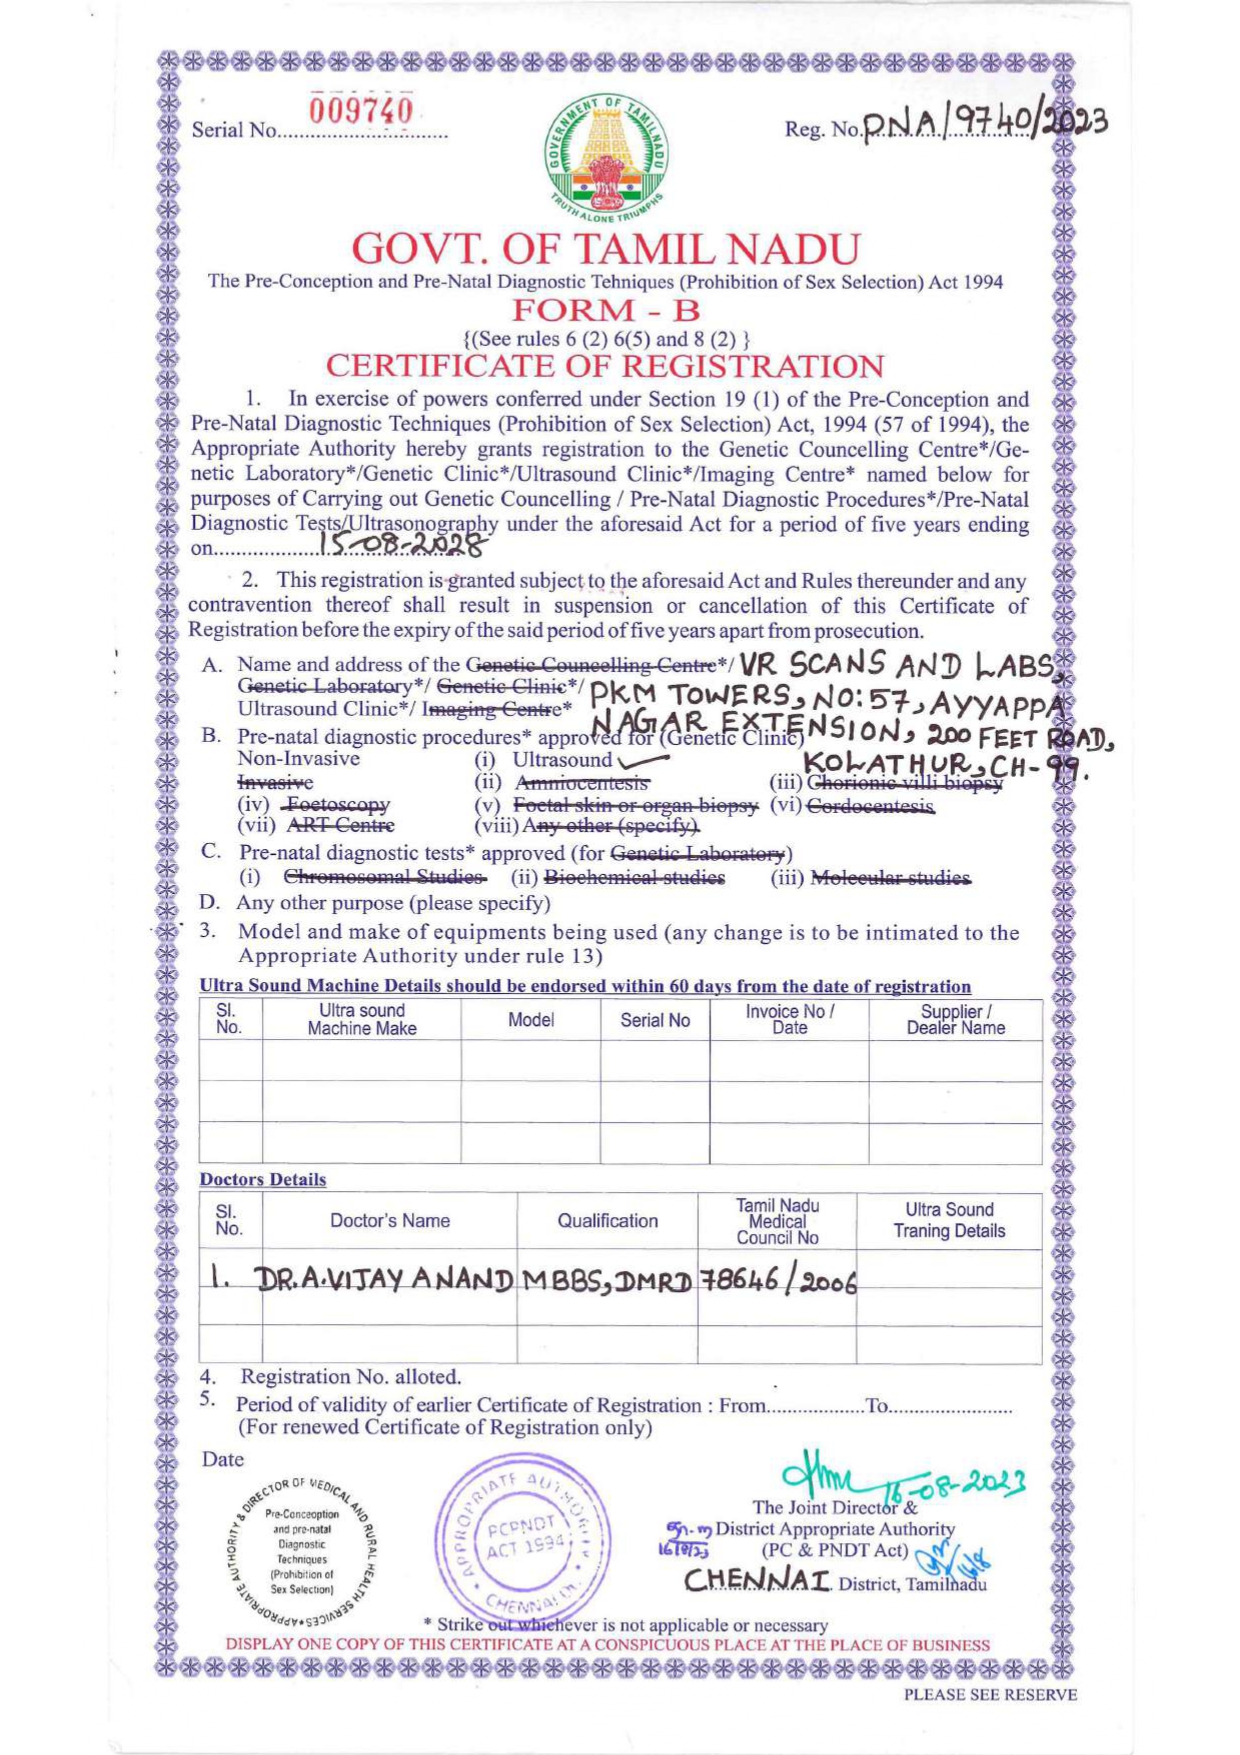 Serial No. 009740
Reg. No. PNA/9740/2023
GOVERNMENT OF TAMILNADU
TRUTH ALONE TRIUMPHS
GOVT. OF TAMIL NADU
The Pre-Conception and Pre-Natal Diagnostic Tehniques (Prohibition of Sex Selection) Act 1994
FORM - B
{(See rules 6 (2) 6(5) and 8 (2) }
CERTIFICATE OF REGISTRATION
1. In exercise of powers conferred under Section 19 (1) of the Pre-Conception and
Pre-Natal Diagnostic Techniques (Prohibition of Sex Selection) Act, 1994 (57 of 1994), the
Appropriate Authority hereby grants registration to the Genetic Councelling Centre*/Ge-
netic Laboratory*/Genetic Clinic*/Ultrasound Clinic*/Imaging Centre* named below for
purposes of Carrying out Genetic Councelling / Pre-Natal Diagnostic Procedures*/Pre-Natal
Diagnostic Tests/Ultrasonography under the aforesaid Act for a period of five years ending
on...................15-08-2028
2. This registration is granted subject to the aforesaid Act and Rules thereunder and any
contravention thereof shall result in suspension or cancellation of this Certificate of
Registration before the expiry of the said period of five years apart from prosecution.
A. Name and address of the Genetic Councelling Centre*/ VR SCANS AND LABS,
Genetic Laboratory*/ Genetic Clinic*/ PKM TOWERS, NO: 57, AYYAPPA
Ultrasound Clinic*/ Imaging Centre* NAGAR EXTENSION, 200 FEET ROAD,
B. Pre-natal diagnostic procedures* approved for (Genetic Clinic)
Non-Invasive (i) Ultrasound ✓ KOLATHUR, CH-99.
Invasive (ii) Amniocentesis (iii) Chorionic villi biopsy
(iv) Foetoscopy (v) Foetal skin or organ biopsy (vi) Cordocentesis
(vii) ART Centre (viii) Any other (specify)
C. Pre-natal diagnostic tests* approved (for Genetic Laboratory)
(i) Chromosomal Studies (ii) Biochemical studies (iii) Molecular studies
D. Any other purpose (please specify)
3. Model and make of equipments being used (any change is to be intimated to the
Appropriate Authority under rule 13)
Ultra Sound Machine Details should be endorsed within 60 days from the date of registration
Sl. No. Ultra sound Machine Make Model Serial No Invoice No / Date Supplier / Dealer Name
Doctors Details
Sl. No. Doctor's Name Qualification Tamil Nadu Medical Council No Ultra Sound Traning Details
1. DR.A.VIJAY ANAND MBBS, DMRD 78646/2006
4. Registration No. alloted.
5. Period of validity of earlier Certificate of Registration : From..................To.......................
(For renewed Certificate of Registration only)
Date
APPROPRIATE AUTHORITY & DIRECTOR OF MEDICAL AND RURAL HEALTH SERVICES
Pre-Conceoption
and pre-natal
Diagnostic
Techniques
(Prohibition of
Sex Selection)
APPROPRIATE AUTHORITY
PCPNDT
ACT 1994
CHENNAI
16-08-2023
The Joint Director &
District Appropriate Authority
16/8/23 (PC & PNDT Act)
CHENNAI District, Tamilnadu
* Strike out whichever is not applicable or necessary
DISPLAY ONE COPY OF THIS CERTIFICATE AT A CONSPICUOUS PLACE AT THE PLACE OF BUSINESS
PLEASE SEE RESERVE